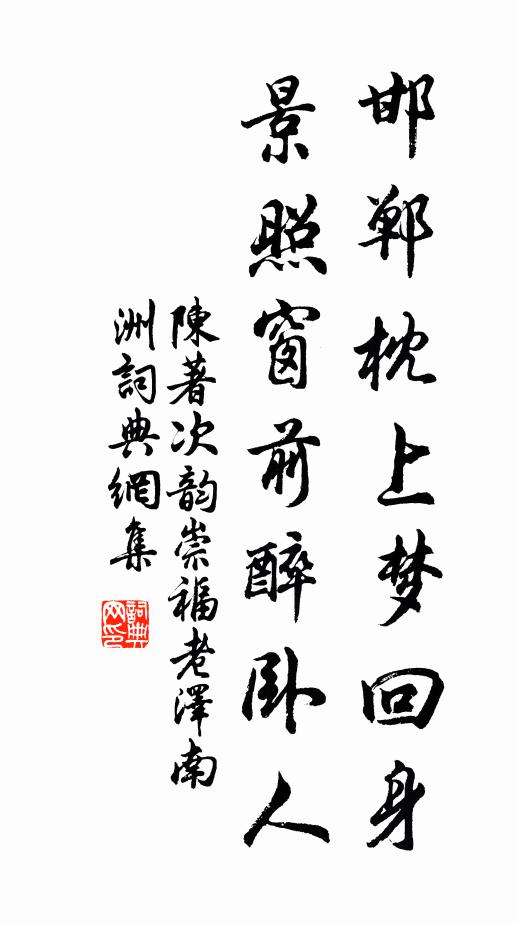 邯鄲枕上梦回身
景照窗前醉卧人
陳著次韵崇福老澤南
洲詞典網集
詞典网印